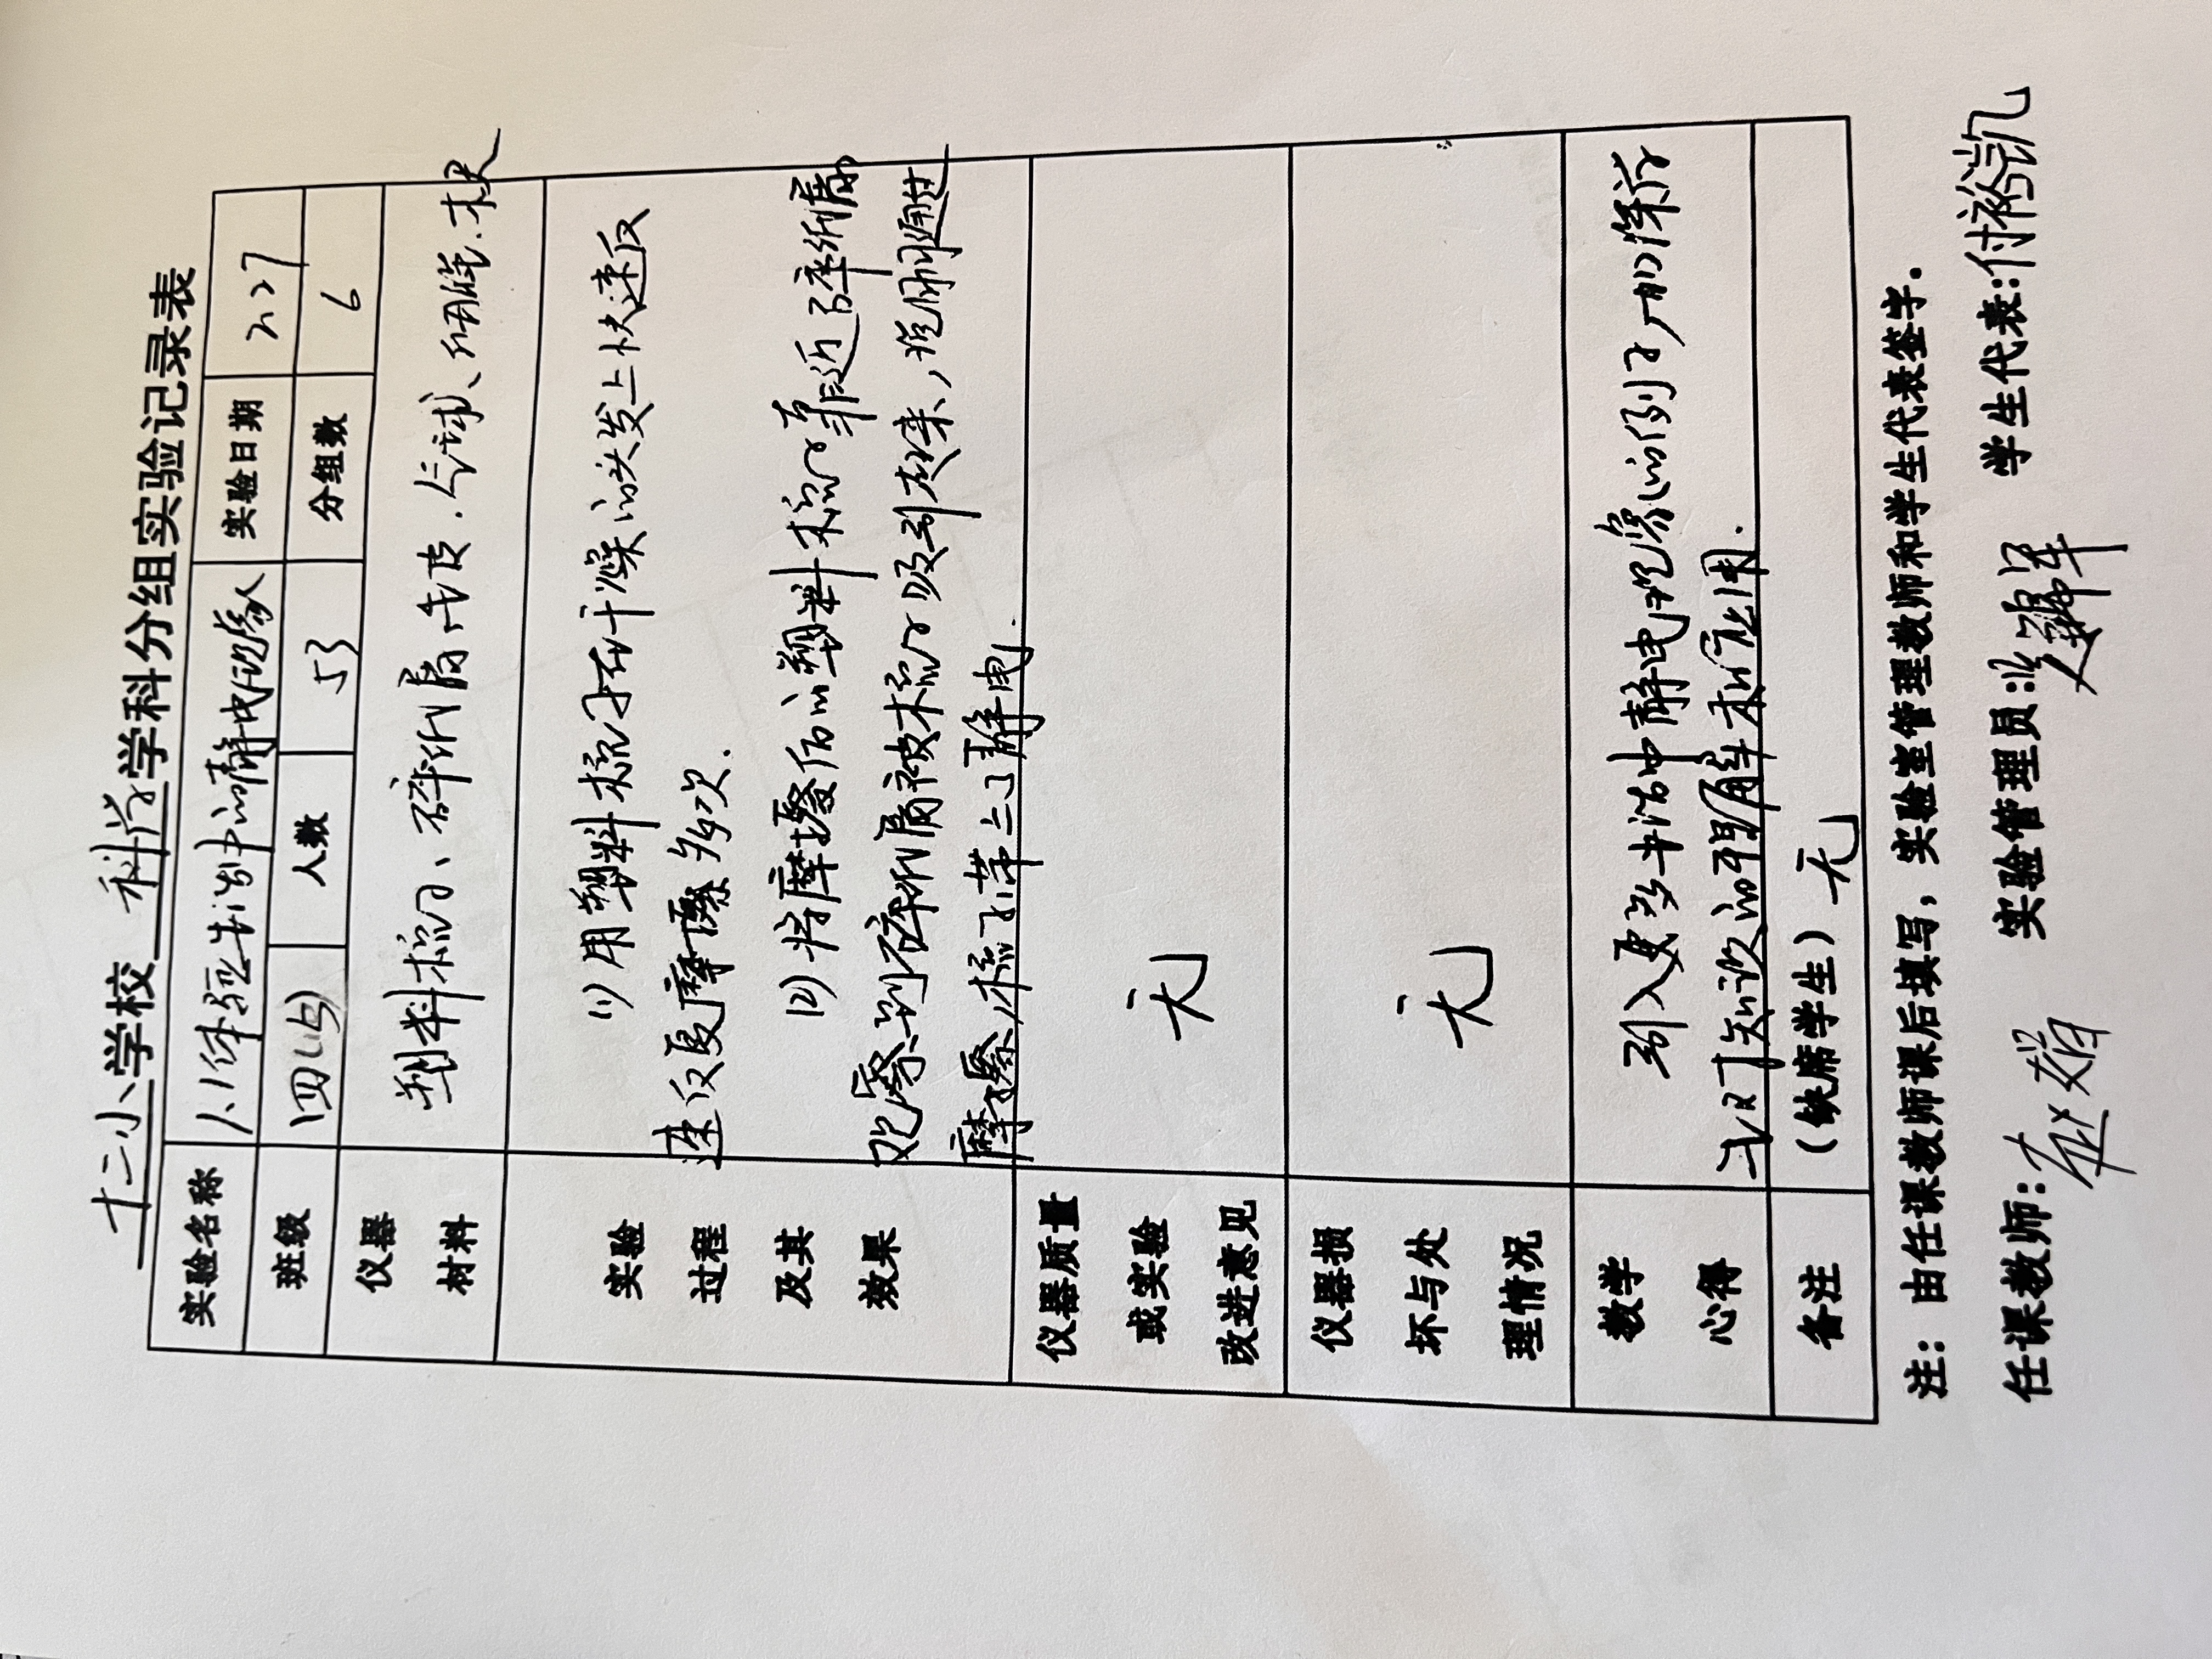 十二小学校 科学 学科分组实验记录表
实验名称 体验生活中的静电现象 实验日期 2.27
班级 四(4) 人数 53 分组数 6
仪器材料 塑料梳子、碎纸屑、毛皮、气球、细绳、
实验过程及其效果
(1)用塑料梳子在干燥的头发上快速反
速反复摩擦多次.
(2)将摩擦后的塑料梳子靠近碎纸屑
观察到碎纸屑被梳子吸引起来,说明通过
摩擦,梳子带上了静电.
仪器质量或实验改进意见 无
仪器损坏与处理情况 无
教学心得 引入更多生活中静电现象的例子,加深学
对知识的理解和应用.
备注 (缺席学生) 无
注:由任课教师课后填写,实验室管理教师和学生代表签字.
任课教师: 实验管理员: 学生代表:付裕凯